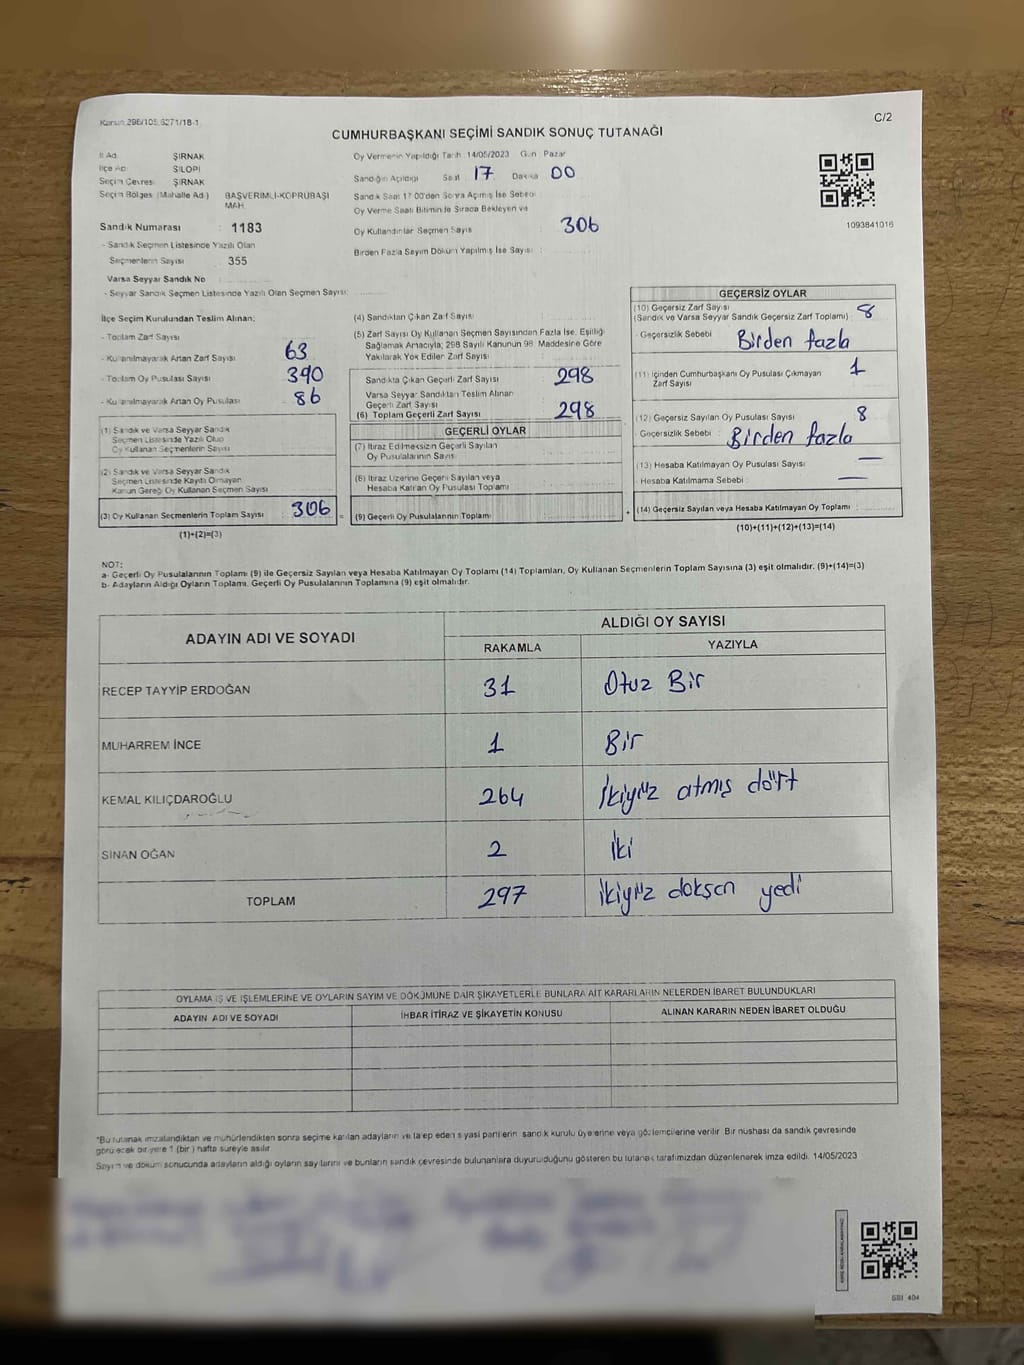 Kanun 298/105 6271/18-1
C/2
CUMHURBAŞKANI SEÇİMİ SANDIK SONUÇ TUTANAĞI
İl Adı ŞIRNAK
İlçe Adı SİLOPİ
Seçim Çevresi ŞIRNAK
Seçim Bölgesi (Mahalle Adı) BAŞVERİMLİ-KÖPRÜBAŞI MAH.
Oy Vermenin Yapıldığı Tarih 14/05/2023 Gün Pazar
Sandığın Açıldığı Saat 17 Dakika 00
Sandık Saat 17:00'den Sonra Açılmış İse Sebebi
Oy Verme Saati Bitiminde Sırada Bekleyen ve
Oy Kullandırılan Seçmen Sayısı 306
Birden Fazla Sayım Döküm Yapılmış İse Sayısı :
1093841016
Sandık Numarası : 1183
- Sandık Seçmen Listesinde Yazılı Olan
Seçmenlerin Sayısı : 355
Varsa Seyyar Sandık No
- Seyyar Sandık Seçmen Listesinde Yazılı Olan Seçmen Sayısı:
İlçe Seçim Kurulundan Teslim Alınan;
- Toplam Zarf Sayısı
- Kullanılmayarak Artan Zarf Sayısı 63
- Toplam Oy Pusulası Sayısı 390
- Kullanılmayarak Artan Oy Pusulası 86
(1) Sandık ve Varsa Seyyar Sandık
Seçmen Listesinde Yazılı Olup
Oy Kullanan Seçmenlerin Sayısı
(2) Sandık ve Varsa Seyyar Sandık
Seçmen Listesinde Kayıtlı Olmayan
Kanun Gereği Oy Kullanan Seçmen Sayısı
(3) Oy Kullanan Seçmenlerin Toplam Sayısı : 306 =
(1)+(2)=(3)
(4) Sandıktan Çıkan Zarf Sayısı
(5) Zarf Sayısı Oy Kullanan Seçmen Sayısından Fazla İse, Eşitliği
Sağlamak Amacıyla; 298 Sayılı Kanunun 98. Maddesine Göre
Yakılarak Yok Edilen Zarf Sayısı
Sandıkta Çıkan Geçerli Zarf Sayısı 298
Varsa Seyyar Sandıktan Teslim Alınan
Geçerli Zarf Sayısı
(6) Toplam Geçerli Zarf Sayısı 298
GEÇERLİ OYLAR
(7) İtiraz Edilmeksizin Geçerli Sayılan
Oy Pusulalarının Sayısı
(8) İtiraz Üzerine Geçerli Sayılan veya
Hesaba Katılan Oy Pusulası Toplamı
(9) Geçerli Oy Pusulalarının Toplamı +
GEÇERSİZ OYLAR
(10) Geçersiz Zarf Sayısı
(Sandık ve Varsa Seyyar Sandık Geçersiz Zarf Toplamı) : 8
- Geçersizlik Sebebi : Birden fazla
(11) İçinden Cumhurbaşkanı Oy Pusulası Çıkmayan
Zarf Sayısı 1
(12) Geçersiz Sayılan Oy Pusulası Sayısı 8
Geçersizlik Sebebi : Birden fazla
(13) Hesaba Katılmayan Oy Pusulası Sayısı —
Hesaba Katılmama Sebebi : —
(14) Geçersiz Sayılan veya Hesaba Katılmayan Oy Toplamı :
(10)+(11)+(12)+(13)=(14)
NOT:
a- Geçerli Oy Pusulalarının Toplamı (9) ile Geçersiz Sayılan veya Hesaba Katılmayan Oy Toplamı (14) Toplamları, Oy Kullanan Seçmenlerin Toplam Sayısına (3) eşit olmalıdır. (9)+(14)=(3)
b- Adayların Aldığı Oyların Toplamı, Geçerli Oy Pusulalarının Toplamına (9) eşit olmalıdır.
ADAYIN ADI VE SOYADI ALDIĞI OY SAYISI
RAKAMLA YAZIYLA
RECEP TAYYİP ERDOĞAN 31 Otuz Bir
MUHARREM İNCE 1 Bir
KEMAL KILIÇDAROĞLU 264 İkiyüz atmış dört
SİNAN OĞAN 2 İki
TOPLAM 297 İkiyüz doksan yedi
OYLAMA İŞ VE İŞLEMLERİNE VE OYLARIN SAYIM VE DÖKÜMÜNE DAİR ŞİKAYETLERLE BUNLARA AİT KARARLARIN NELERDEN İBARET BULUNDUKLARI
ADAYIN ADI VE SOYADI İHBAR İTİRAZ VE ŞİKAYETİN KONUSU ALINAN KARARIN NEDEN İBARET OLDUĞU
*Bu tutanak imzalandıktan ve mühürlendikten sonra seçime katılan adayların ve talep eden siyasi partilerin sandık kurulu üyelerine veya gözlemcilerine verilir. Bir nüshası da sandık çevresinde
görülecek bir yere 1 (bir) hafta süreyle asılır
Sayım ve döküm sonucunda adayların aldığı oyların sayılarını ve bunların sandık çevresinde bulunanlara duyurulduğunu gösteren bu tutanak tarafımızdan düzenlenerek imza edildi. 14/05/2023